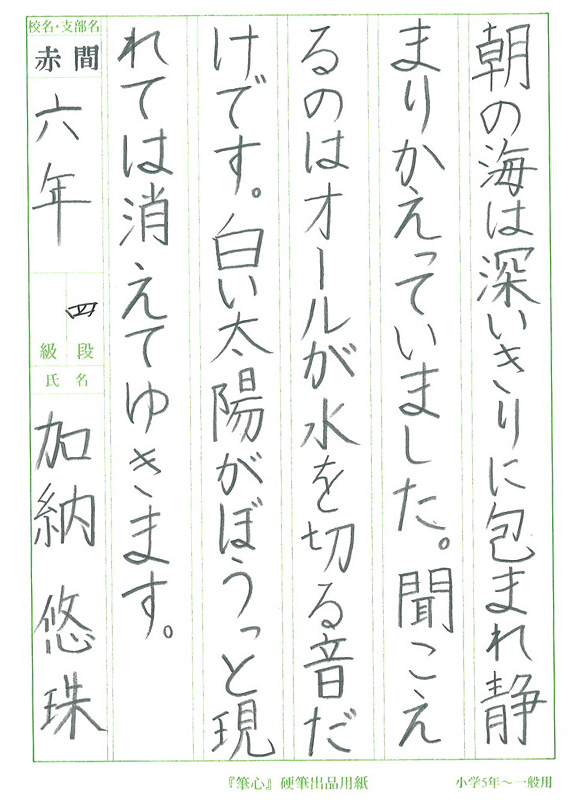 朝の海は深いきりに包まれ静
まりかえっていました。聞こえ
るのはオールが水を切る音だ
けです。白い太陽がぼうっと現
れては消えてゆきます。
校名・支部名
赤間
六年
四
段
級
氏名
加納 悠珠
『筆心』硬筆出品用紙
小学5年～一般用